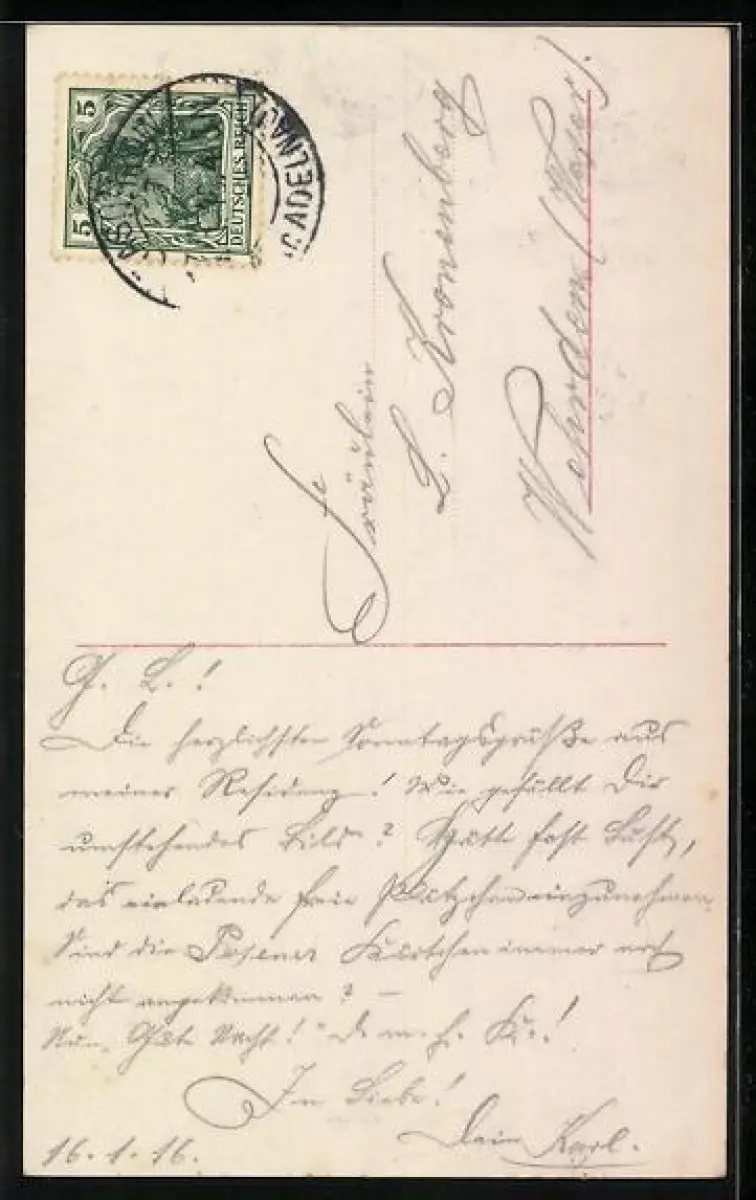 5
5
DEUTSCHES REICH
ADELNAU
Fräulein
L. Kronenberg
Wehrden (Weser).
G. L.!
Die herzlichsten Sonntagsgrüße aus
meiner Residenz! Wie gefällt Dir
umstehendes Bild? Hätte fast Lust,
das einladende freie Plätzchen einzunehmen.
Sind die Posener Kärtchen immer noch
nicht angekommen? –
Nun, Gute Nacht! D. m. h. K.!
In Liebe!
Dein Karl.
16.1.16.